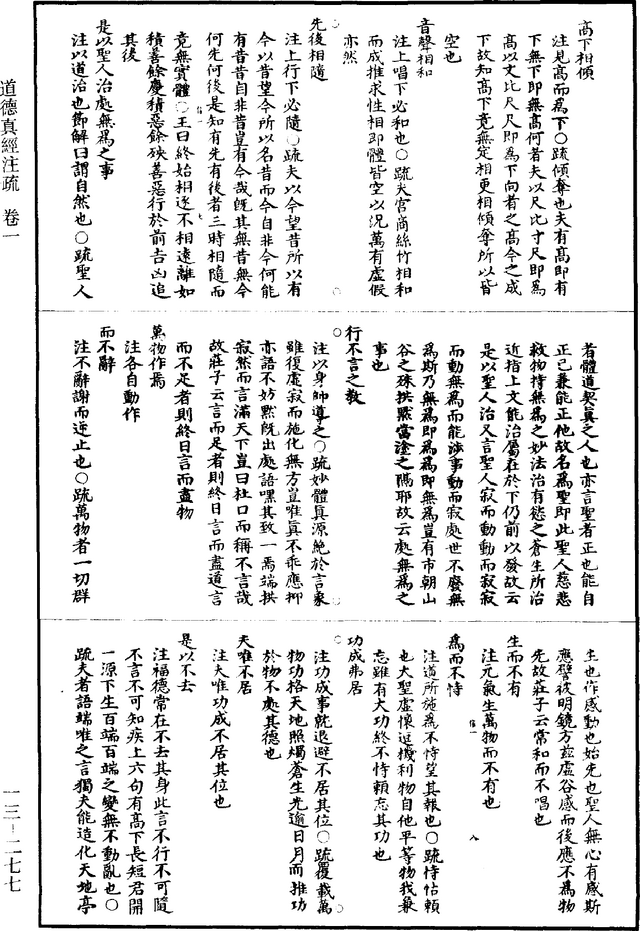 高下相傾
注見高而為下○疏傾奪也夫有高即有
下無下即無高何者夫以尺比寸尺即為
高以文比尺尺即為下向者之高今之成
下故知高下竟無定相更相傾奪所以皆
空也
音聲相和
注上唱下必和也○疏夫宮商絲竹相和
而成推求性相即體皆空以況萬有虛假
亦然
先後相隨
注上行下必隨○疏夫以今望昔所以有
今以昔望今所以名昔而今自非今何能
有昔昔自非昔豈有今哉既其無昔無今
何先何後是知有先有後者三時相隨而
竟無實體○王曰終始相逐不相遠離如
積善餘慶積惡餘殃善惡行於前吉凶追
其後
是以聖人治處無為之事
注以道治也節解曰謂自然也○疏聖人
者體道契真之人也亦言聖者正也能自
正己兼能正他故名為聖即此聖人慈悲
救物持無為之妙法治有慾之蒼生所治
近指上文能治屬在於下仍前以發故云
是以聖人治又言聖人寂而動動而寂寂
而動無為而能涉事動而寂處世不廢無
為斯乃無為即為為即無為豈有市朝山
谷之殊拱默當塗之隔耶故云處無為之
事也
行不言之教
注以身師導之○疏妙體真源絕於言象
雖復處寂而施化無方豈唯真不乖應抑
亦語不妨默既出處語嘿其致一焉端拱
寂然而言滿天下豈曰杜口而稱不言哉
故莊子云言而足者則終日言而盡道言
而不足者則終日言而盡物
萬物作焉
注各自動作
而不辭
注不辭謝而逆止也○疏萬物者一切群
生也作感動也始先也聖人無心有感斯
應譬彼明鏡方茲虛谷感而後應不為物
先故莊子云常和而不唱也
生而不有
注元氣生萬物而不有也
為而不恃
注道所施為不恃望其報也○疏恃怙賴
也大聖虛懷逗機利物自他平等物我兼
忘雖有大功終不恃賴忘其功也
功成弗居
注功成事就退避不居其位○疏覆載萬
物功格天地照燭蒼生光逾日月而推功
於物不處其德也
夫唯不居
注夫唯功成不居其位也
是以不去
注福德常在不去其身此言不行不可隨
不言不可知疾上六句有高下長短君開
一源下生百端百端之變無不動亂也○
疏夫者語端唯之言獨夫能造化天地亭
道德真經注疏 卷一
一三—二七七